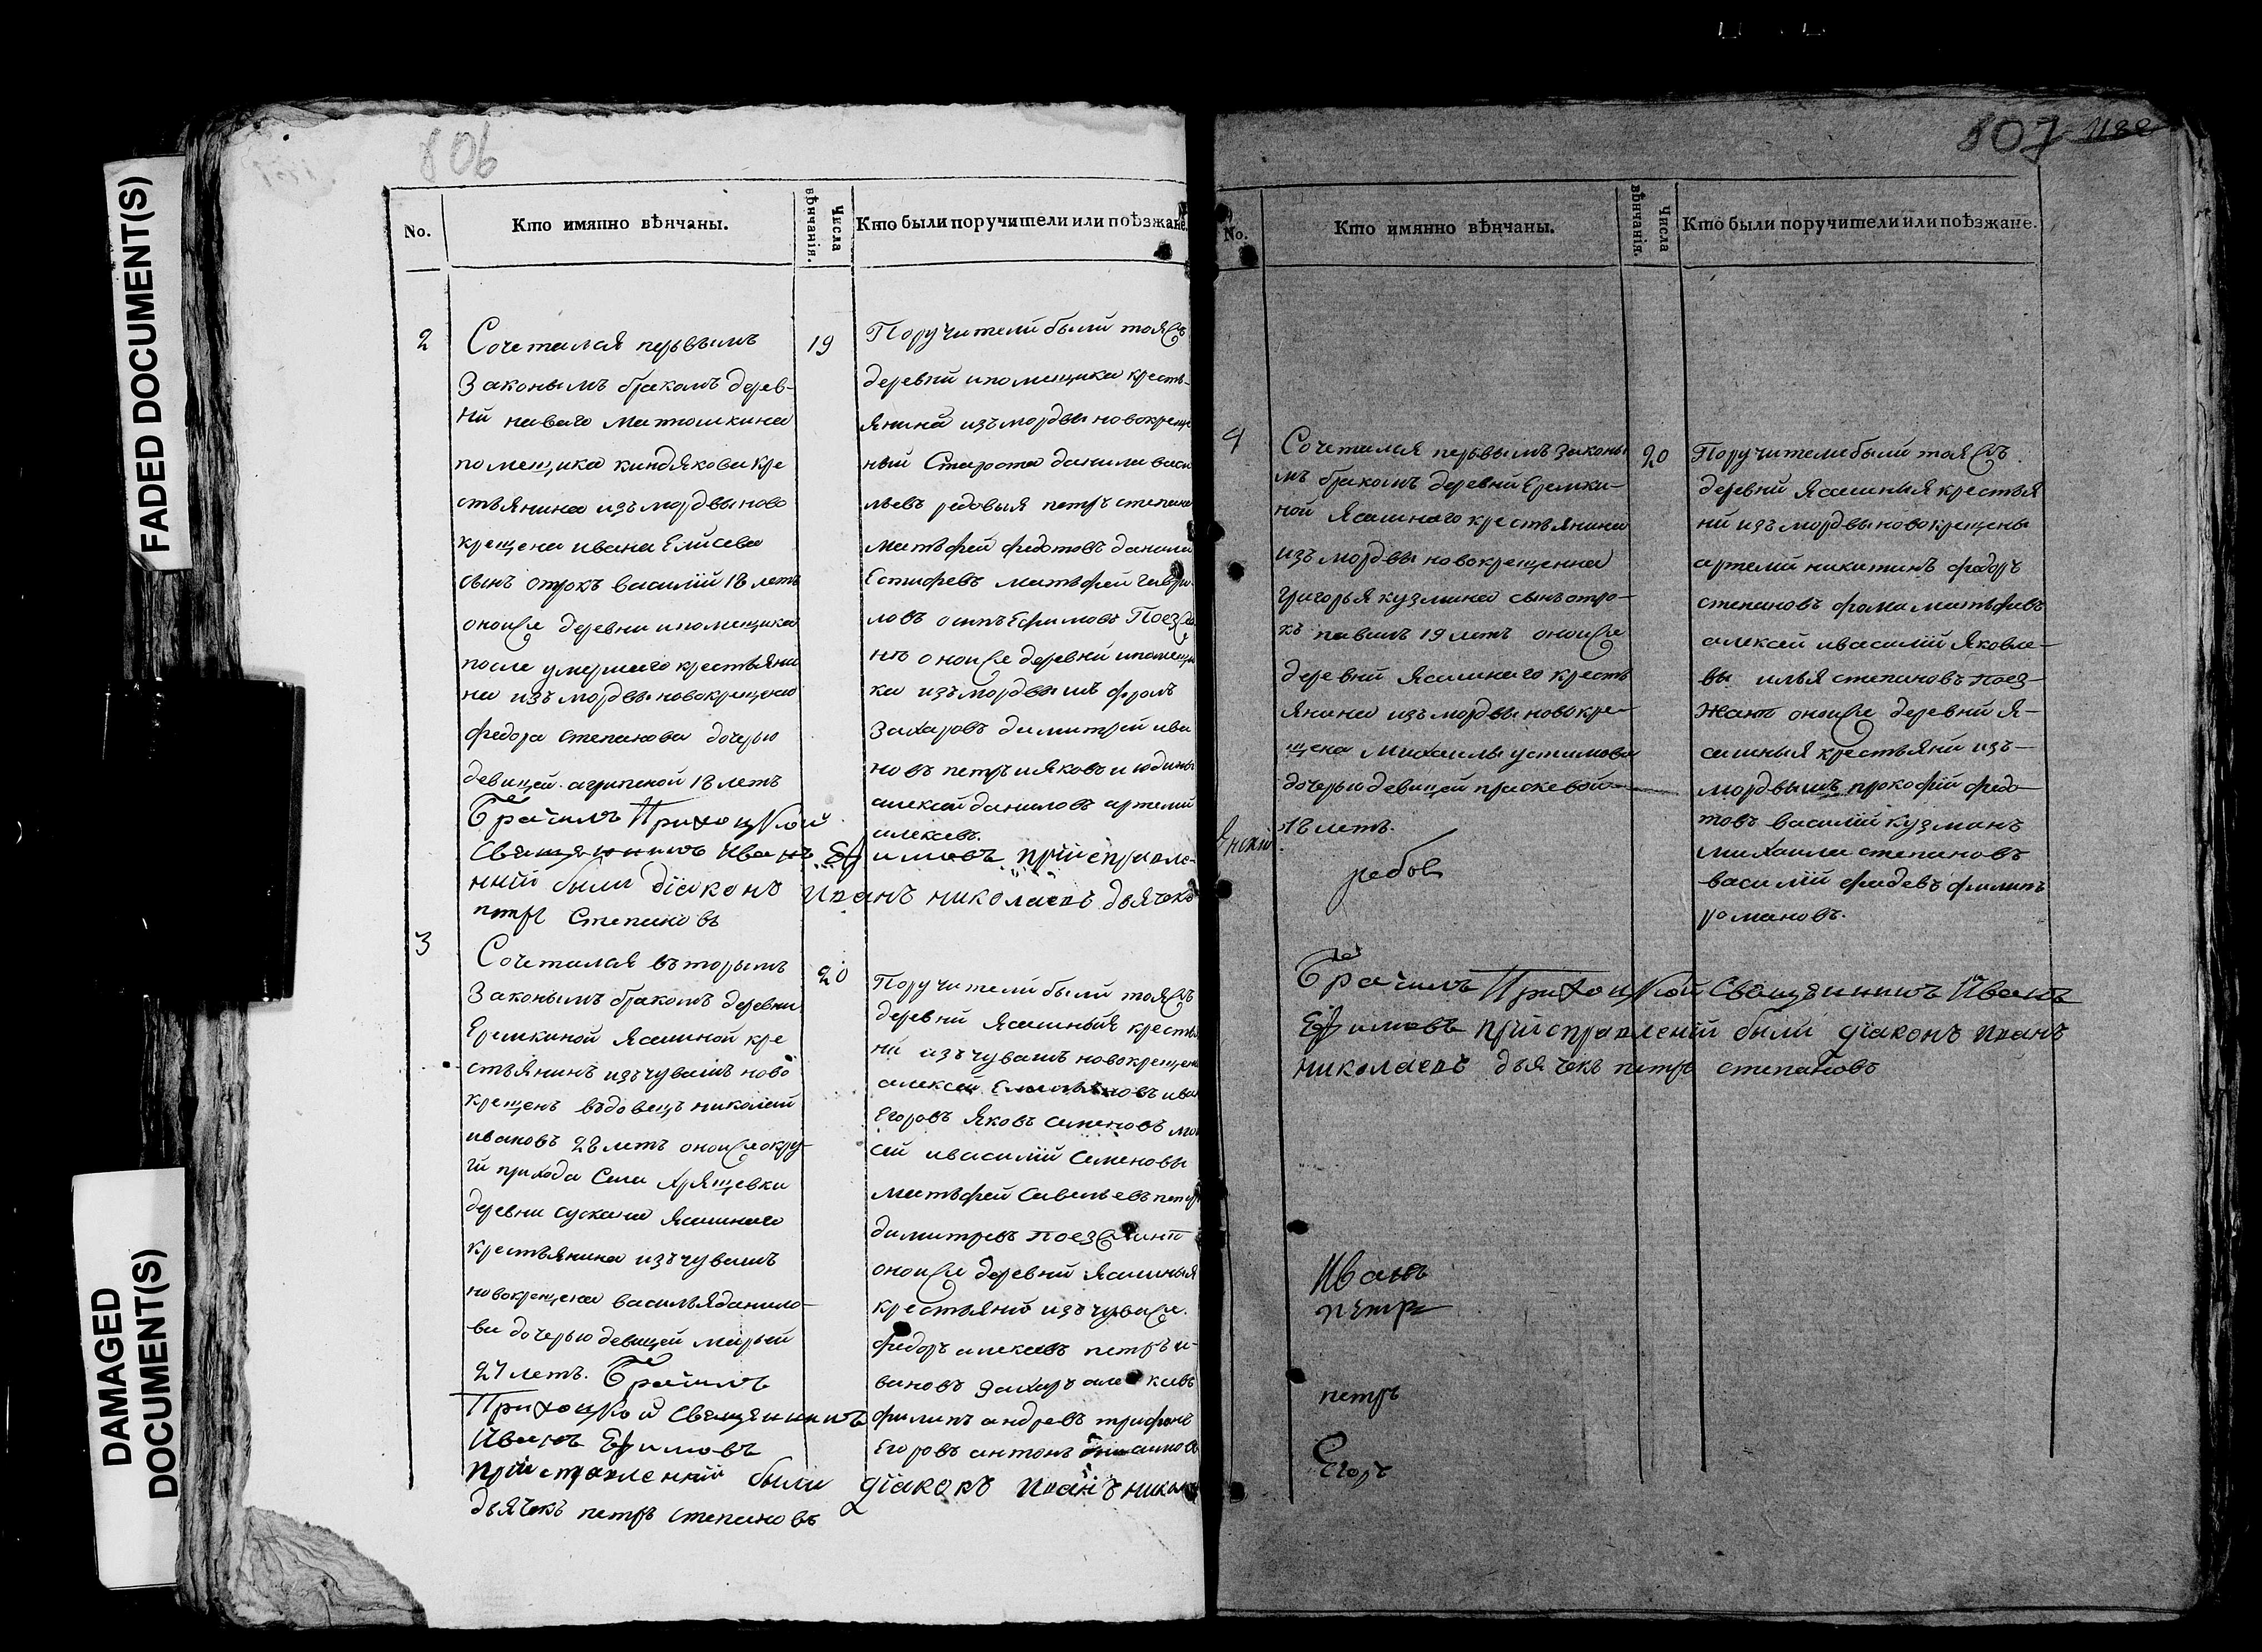 FADED DOCUMENT(S)
DAMAGED
DOCUMENT(S)
806
No.
Кто имянно вѣнчаны.
Числа
вѣнчанія.
Кто были поручители или поѣзжане.
2
Сочетался первымъ
законымъ бракомъ дерев-
ни новаго матюшкина
помещика киндякова кре
стьянина изъ мордвы ново
крещена ивана Елисева
сынъ отрокъ василий 18 летъ
оной же деревни и помещика
после умершего крестьяни
на изъ мордвы новокрещена
федора степанова дочерью
девицей агрипеной 18 летъ
Брачилъ Приходцкой
Священникъ Иванъ Ефимовъ при исправле-
нии были дiаконъ Иванъ николаевъ дьячекъ
петръ Степановъ
19
Поручители были тояжъ
деревни и помещика кресть-
янина изъ мордвы новокреще
ный Староста данила васи
льевъ редовыя петръ степано
матвфей федотовъ данила
Естифевъ матвфей гаври-
ловъ осипъ Ефимовъ Поезжа
нѣ оной же деревни и помещи
ка изъ мордвы шъ фролъ
Захаровъ димитрей ива
новъ петръ и яковъ июдины
алексей даниловъ артемий
алексевъ.
3
Сочетался въторымъ
законымъ бракомъ деревни
Еремкиной Ясашной кре
стьянинъ изъ чувашъ ново
крещенъ въдовецъ николай
ивановъ 28 летъ оной же окру-
ги прихода Села Хрящевки
деревни сускана Ясашнаго
крестьянина изъ чувашъ
новокрещена василья данило-
ва дочерью девицей марьей
27 летъ. Брачилъ
Приходцкой Священникъ
Иванъ Ефимовъ
при исправлении были дiаконъ Иванъ никола
дьячекъ петръ степановъ
20
Поручители были тояжъ
деревни Ясашныя кресть
ни изъ чувашъ новокрещены
алексей
Егоровъ Яковъ Семеновъ мои
сей и василий Семеновы
матвфей Савельевъ петръ
димитревъ поезжанѣ
оной же деревни Ясашныя
крестьяни изъ чуваше
федоръ алексевъ петръ и-
вановъ Захаръ алексевъ
филипъ андревъ трифонъ
Егоровъ антонъ
807
No.
Кто имянно вѣнчаны.
Числа
вѣнчанія.
Кто были поручители или поѣзжане.
4
Сочетался первымъ законы
мъ бракомъ деревни Еремки-
ной Ясашнаго крестьянина
изъ мордвы новокрещенна
григорья кузмина сынъ отро-
къ павилъ 19 летъ оной же
деревни Ясашнаго кресть
янина изъ мордвы новокре-
щена михаилы устимова
дочерью девицей праскевой
18 летъ.
20
Поручители были тояжъ
деревни Ясашныя крестья
ни изъ мордвы новокрещены
артемий никитинъ федоръ
степановъ фома матвфевъ
алексей и василий Яковле-
вы илья степановъ поез-
жанѣ оной же деревни Я-
сашныя крестьяни изъ-
мордвы шъ прокофий федо-
товъ василий кузманъ
михаила степановъ
василий фадевъ филипъ
романовъ.
Брачилъ Приходцкой Священникъ Иванъ
Ефимовъ при исправлении были дiаконъ Иванъ
николаевъ дьячекъ петръ степановъ
Иванъ
петръ
петръ
Егоръ